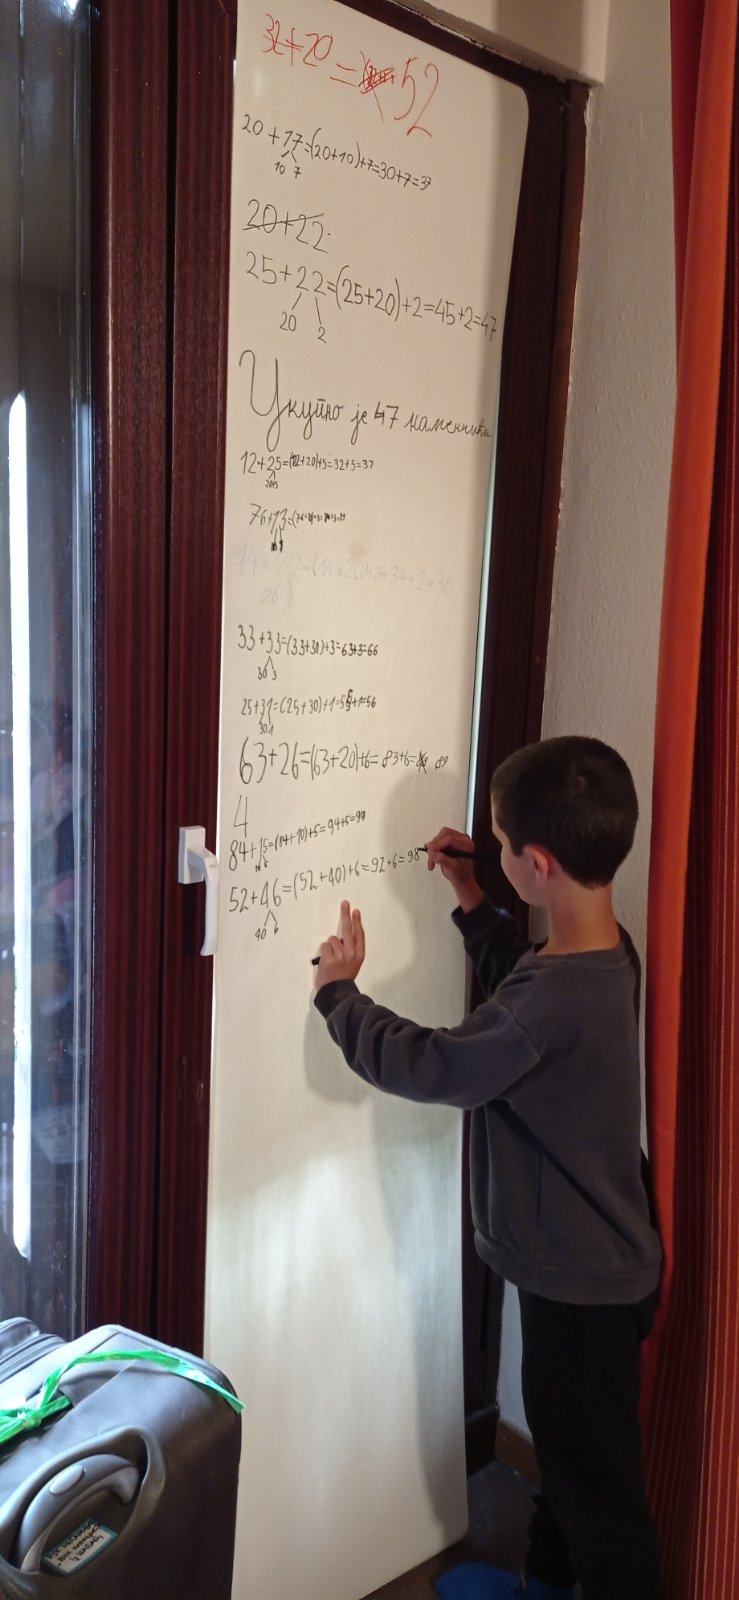 32+20=52
20+17=(20+10)+7=30+7=37
10 7
20+22
25+22=(25+20)+2=45+2=47
20 2
Укупно је 47 каменчића
12+25=(12+20)+5=32+5=37
20 5
76+13=
14+22=(14+20)+2=34+2=36
20 2
33+33=(33+30)+3=63+3=66
30 3
25+31=(25+30)+1=55+1=56
30 1
63+26=(63+20)+6=83+6=89
4
84+15=(84+10)+5=94+5=99
10 5
52+46=(52+40)+6=92+6=98
40 6